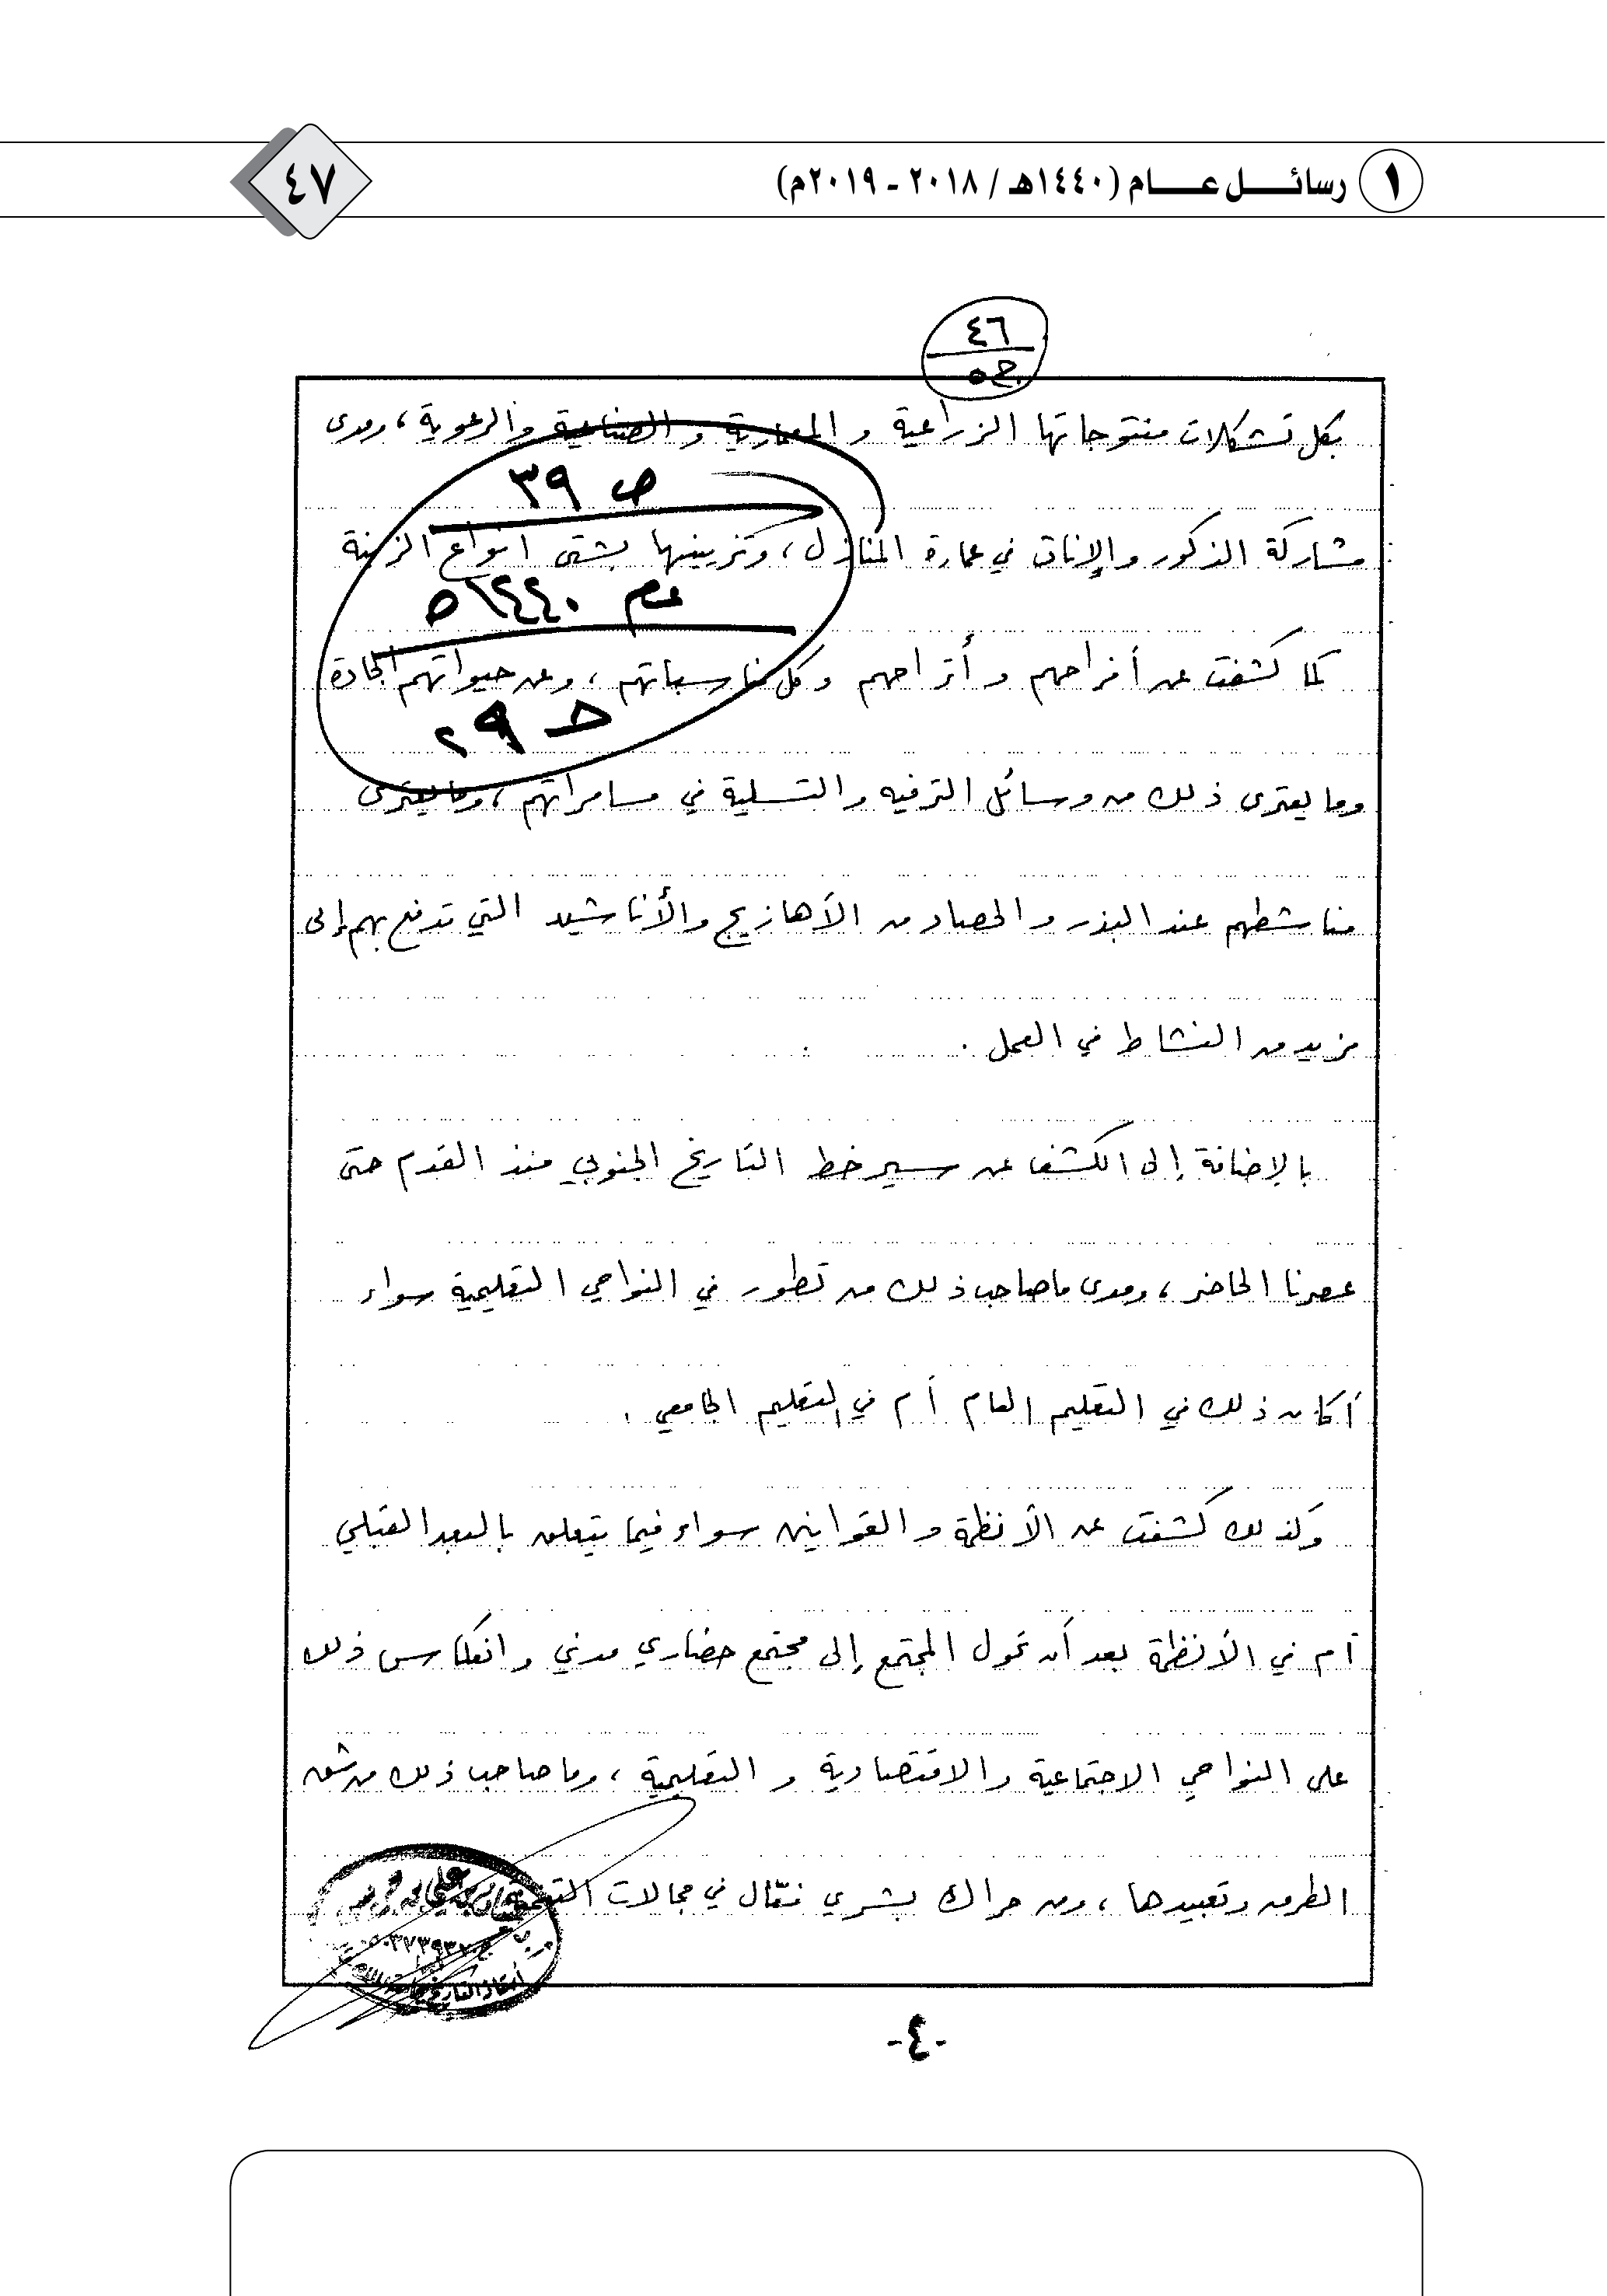 ١ رسائل عام (١٤٤٠هـ / ٢٠١٨ - ٢٠١٩م)
٤٧
٤٦
ج٥
بكل تشكلات منتوجاتها الزراعية و المعمارية و الصناعية والرعوية ، ومدى
ص ٣٩
مشاركة الذكور والإناث في عمارة المنازل ، وتزيينها بشتى انواع الزينة
عام ١٤٤٠هـ
كما كشفت عن أفراحهم و أتراحهم وكل مناسباتهم ، وعن حيواتهم الجادة
٢٩
وما يعترى ذلك من وسائل الترفيه والتسلية في مسامراتهم ، وما يعترى
مناشطهم عند البذر و الحصاد من الأهازيج والأناشيد التي تدفع بهم إلى
مزيد من النشاط في العمل .
بالإضافة إلى الكشف عن سير خط التاريخ الجنوبي منذ القدم حتى
عصرنا الحاضر ، ومدى ما صاحب ذلك من تطور في النواحي التعليمية سواء
أكان ذلك في التعليم العام أم في التعليم الجامعي .
وكذلك كشفت عن الأنظمة و القوانين سواء فيما يتعلق بالبعد القبلي
أم في الأنظمة بعد أن تحول المجتمع إلى مجتمع حضاري مدني و انعكاس ذلك
على النواحي الاجتماعية والاقتصادية و التعليمية ، وما صاحب ذلك من شق
الطرق وتعبيدها ، ومن حراك بشري فعّال في مجالات
-٤-